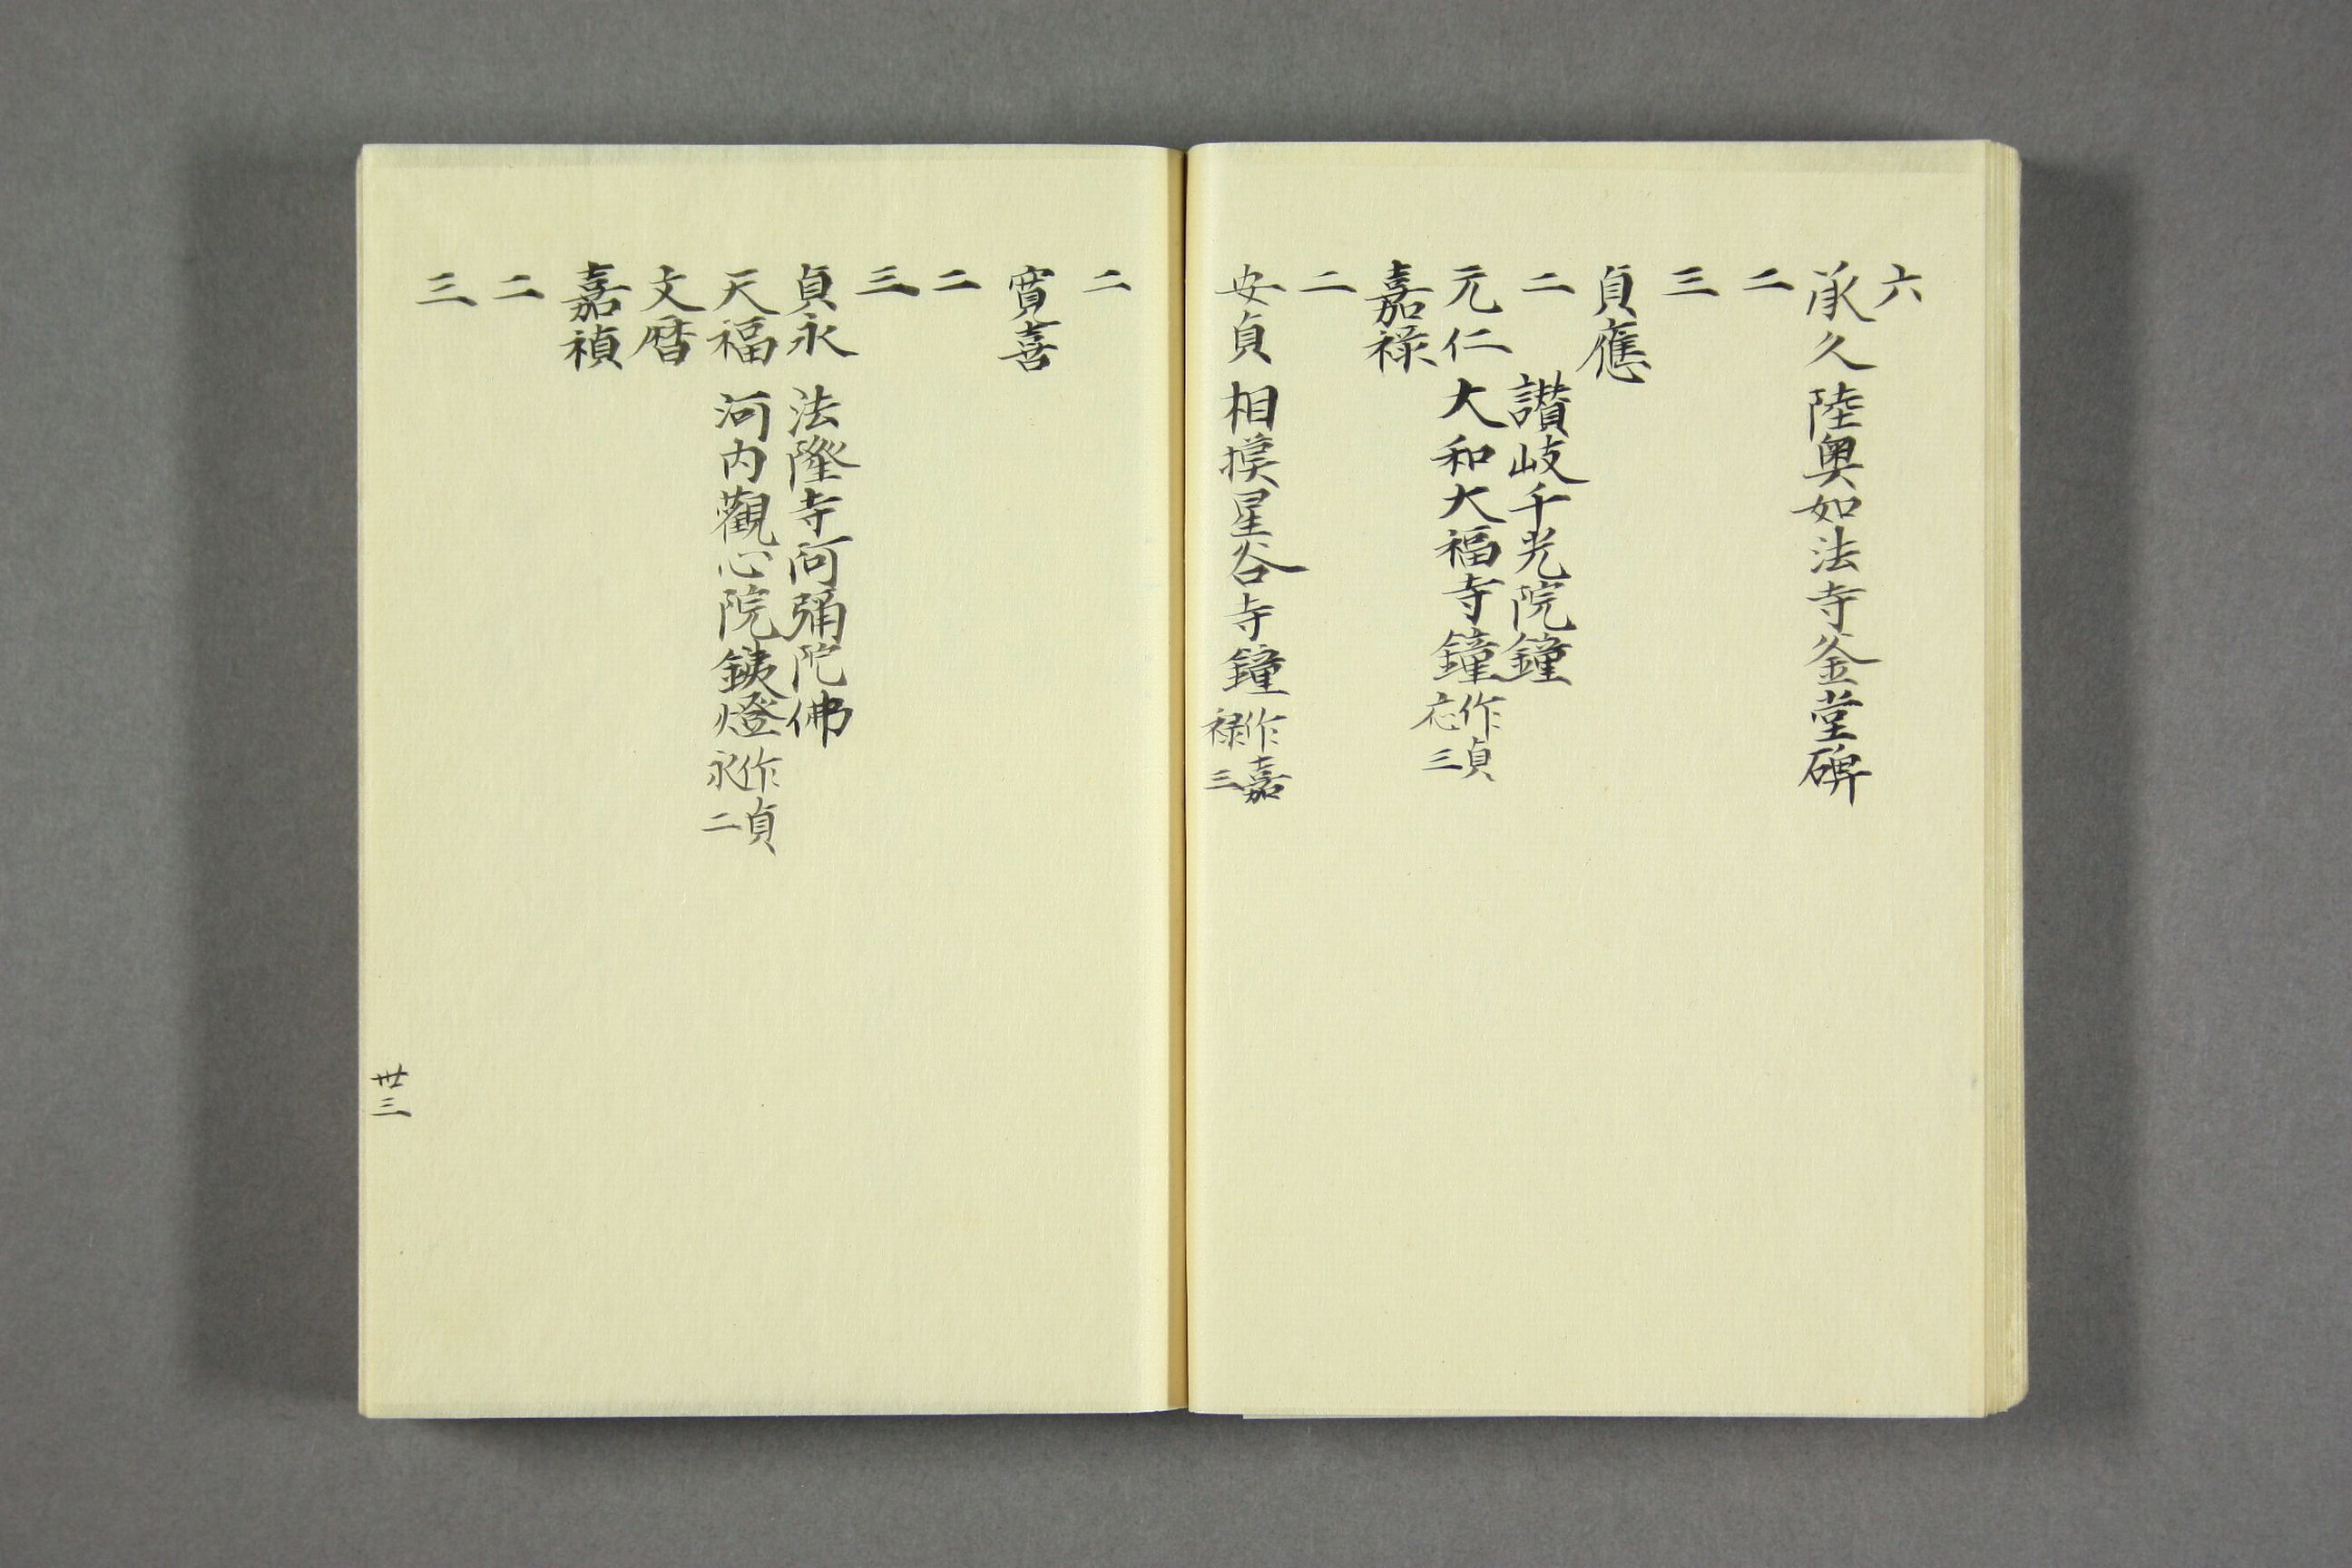 六
承久 陸奥如法寺金堂碑
二
三
貞應
二 讃岐千光院鐘
元仁 大和大福寺鐘 作貞応三
嘉祿
二
安貞 相摸星谷寺鐘 作嘉禄三
二
寛喜
二
三
貞永 法隆寺阿彌陀佛
天福 河内觀心院鉄燈 作貞永二
文暦
嘉禎
二
三
卅三